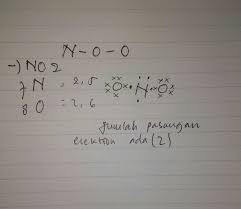 N-O-O
-) NO2
7 N = 2,5
8 O = 2,6
O N O
Jumlah pasangan
elektron ada (2)